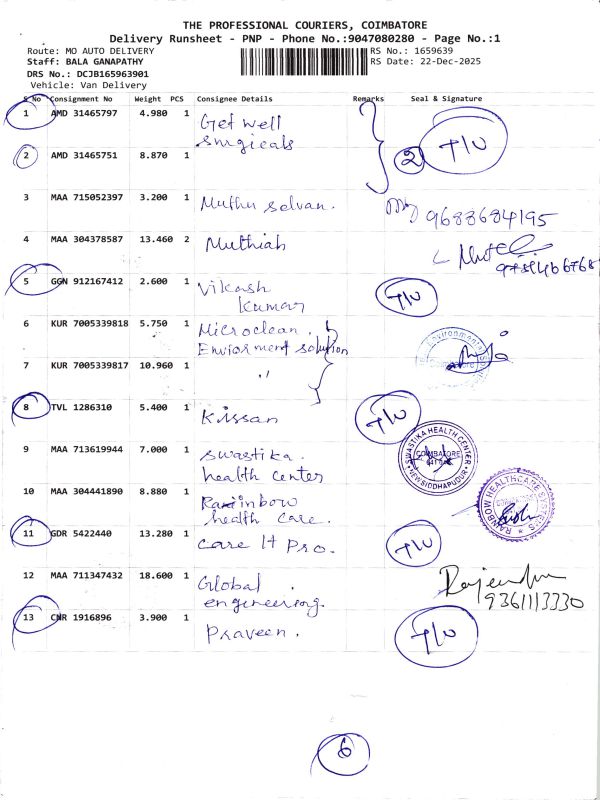 THE PROFESSIONAL COURIERS, COIMBATORE
Delivery Runsheet - PNP - Phone No.:9047080280 - Page No.:1
Route: MO AUTO DELIVERY
RS No.: 1659639
Staff: BALA GANAPATHY
RS Date: 22-Dec-2025
DRS No.: DCJB165963901
Vehicle: Van Delivery
S No Consignment No Weight PCS Consignee Details Remarks Seal & Signature
1 AMD 31465797 4.980 1 Get well surgicals
2 AMD 31465751 8.870 1
2 T/U
3 MAA 715052397 3.200 1 Muthu selvan. 9688684195
4 MAA 304378587 13.460 2 Muthiah
5 GGN 912167412 2.600 1 Vikash Kumar T/U
6 KUR 7005339818 5.750 1 Microclean.
Enviorment solution
7 KUR 7005339817 10.960 1 "
8 TVL 1286310 5.400 1 Kissan T/U
9 MAA 713619944 7.000 1 Swastika health center
SWASTIKA HEALTH CENTER
COIMBATORE
NEW SIDDHAPUDUR
10 MAA 304441890 8.880 1 Rainbow health care.
RAINBOW HEALTHCARE SYSTEMS
11 GDR 5422440 13.280 1 Care It Pro. T/U
12 MAA 711347432 18.600 1 Global engineering. Rajendran
9361113330
13 CNR 1916896 3.900 1 Praveen. T/U
6